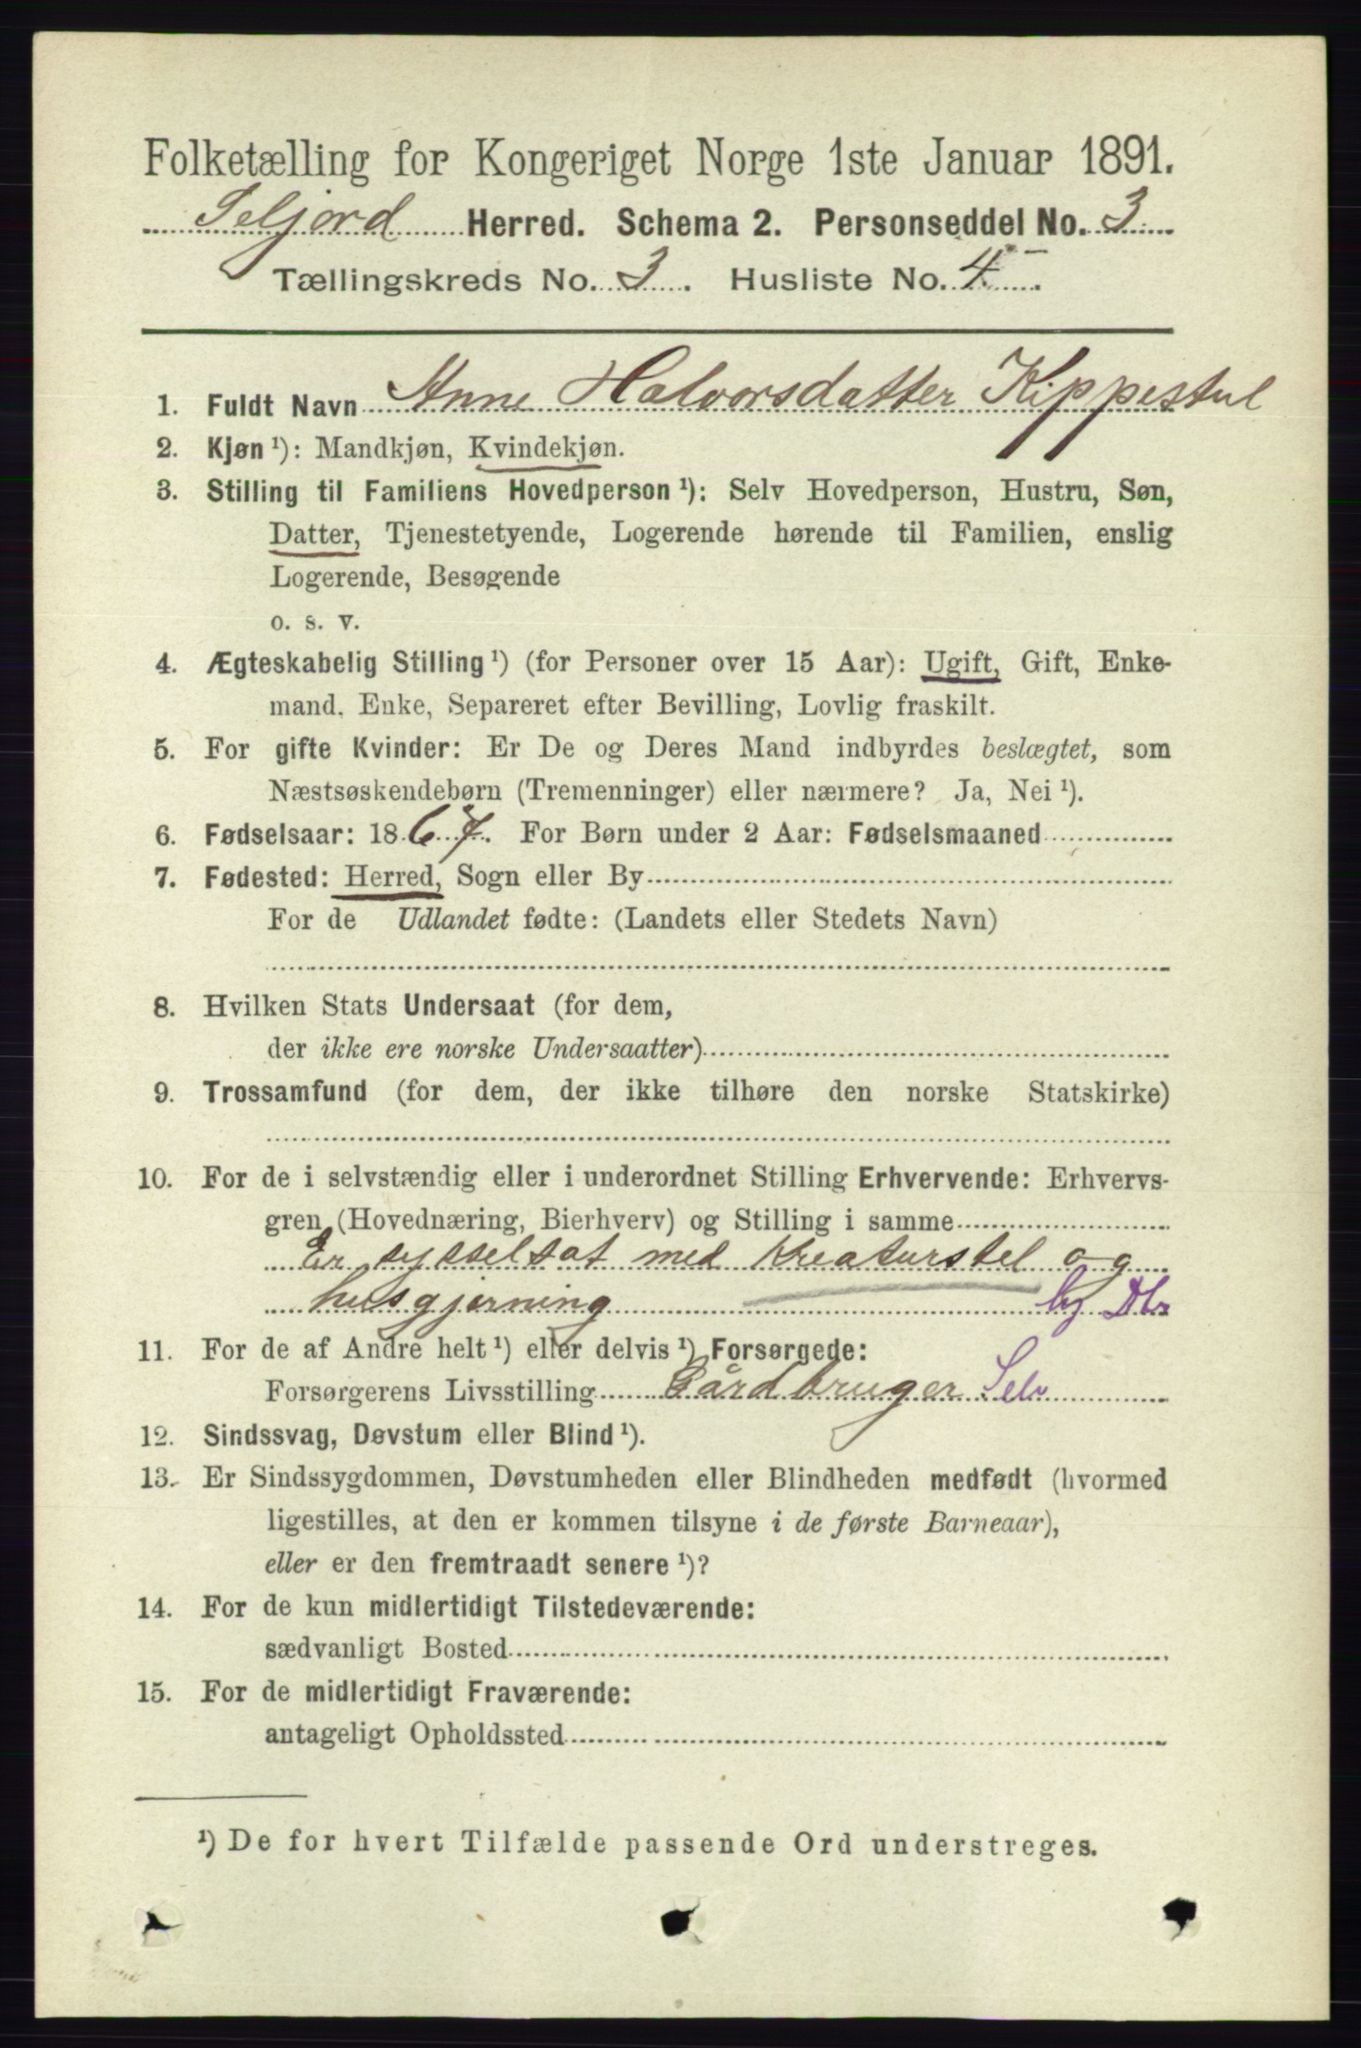 Folketælling for Kongeriget Norge 1ste Januar 1891.
Seljord Herred. Schema 2. Personseddel No. 3
Tællingskreds No. 3. Husliste No. 4.
1. Fuldt Navn Anne Halvorsdatter Kippestul
2. Kjøn ¹): Mandkjøn, Kvindekjøn.
3. Stilling til Familiens Hovedperson ¹): Selv Hovedperson, Hustru, Søn,
Datter, Tjenestetyende, Logerende hørende til Familien, enslig
Logerende, Besøgende
o. s. v.
4. Ægteskabelig Stilling ¹) (for Personer over 15 Aar): Ugift, Gift, Enke-
mand, Enke, Separeret efter Bevilling, Lovlig fraskilt.
5. For gifte Kvinder: Er De og Deres Mand indbyrdes beslægtet, som
Næstsøskendebørn (Tremenninger) eller nærmere? Ja, Nei ¹).
6. Fødselsaar: 1867. For Børn under 2 Aar: Fødselsmaaned
7. Fødested: Herred, Sogn eller By
For de Udlandet fødte: (Landets eller Stedets Navn)
8. Hvilken Stats Undersaat (for dem,
der ikke ere norske Undersaatter)
9. Trossamfund (for dem, der ikke tilhøre den norske Statskirke)
10. For de i selvstændig eller i underordnet Stilling Erhvervende: Erhvervs-
gren (Hovednæring, Bierhverv) og Stilling i samme
Er sysselsat med Kreaturstel og
husgjerning
11. For de af Andre helt ¹) eller delvis ¹) Forsørgede:
Forsørgerens Livsstilling Gårdbruger Selv
12. Sindssvag, Døvstum eller Blind ¹).
13. Er Sindssygdommen, Døvstumheden eller Blindheden medfødt (hvormed
ligestilles, at den er kommen tilsyne i de første Barneaar),
eller er den fremtraadt senere ¹)?
14. For de kun midlertidigt Tilstedeværende:
sædvanligt Bosted
15. For de midlertidigt Fraværende:
antageligt Opholdssted
¹) De for hvert Tilfælde passende Ord understreges.